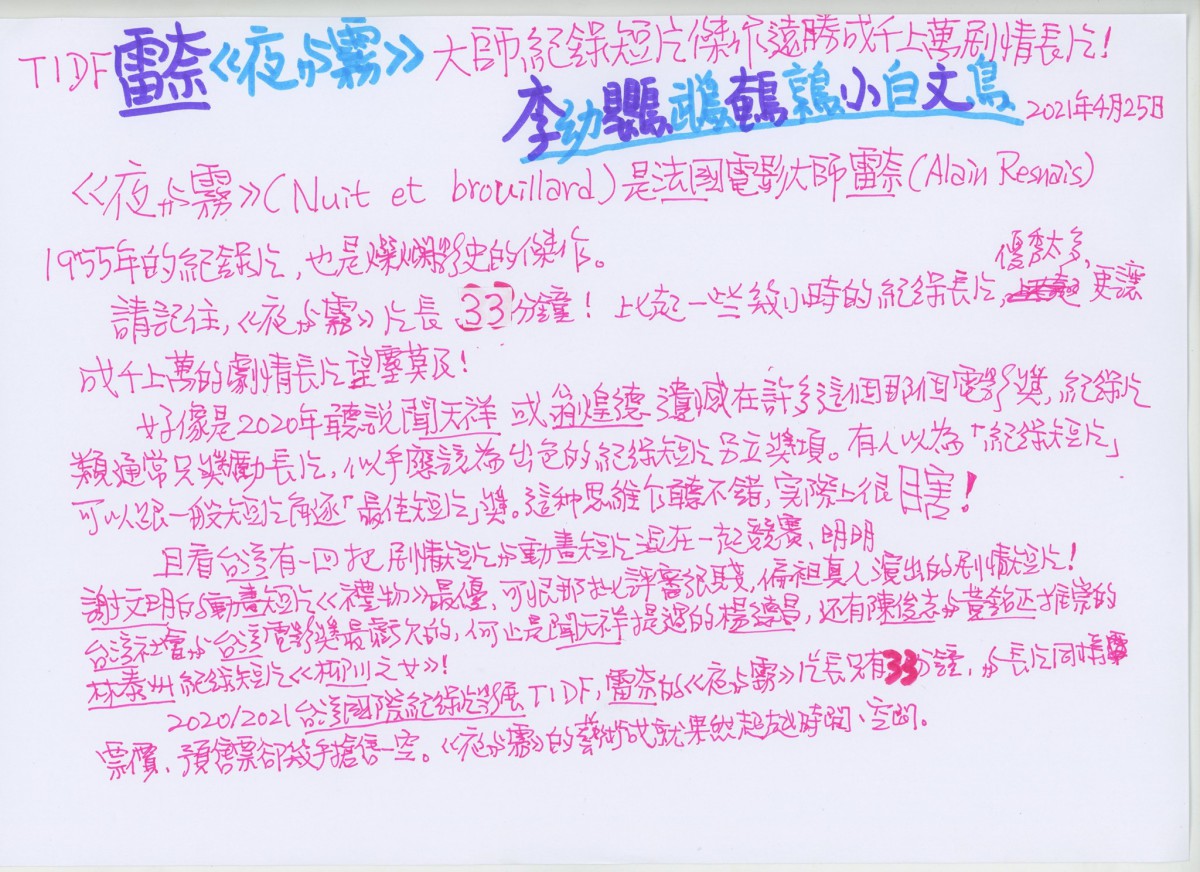 TIDF雷奈《夜與霧》大師紀錄短片傑作遠勝成千上萬劇情長片！
李幼鸚鵡鵪鶉小白文鳥 2021年4月25日
《夜與霧》(Nuit et brouillard)是法國電影大師雷奈(Alain Resnais)
1955年的紀錄片，也是燦爛影史的傑作。
請記住，《夜與霧》片長33分鐘！比起一些幾小時的紀錄長片，優秀太多、更讓
成千上萬的劇情長片望塵莫及！
好像是2020年聽說聞天祥或翁煌德遺憾在許多這個那個電影獎，紀錄片
類通常只獎勵長片，似乎應該為出色的紀錄短片另立獎項。有人以為「紀錄短片」
可以跟一般短片角逐「最佳短片」獎。這种思維乍聽不錯，實際上很瞎！
且看台灣有一回把劇情短片與動畫短片混在一起競賽、明明
謝文明的動畫短片《禮物》最優，可恨那批評審很賤，偏袒真人演出的劇情短片！
台灣社會與台灣電影獎最虧欠的，何止是聞天祥提過的楊德昌，還有陳俊志與黃銘正推崇的
林泰州紀錄短片《柳川之女》！
2020/2021台灣國際紀錄片影展TIDF，雷奈的《夜與霧》片長只有33分鐘，與長片同樣
票價、預售票卻幾乎搶售一空。《夜與霧》的藝術成就果然超越時間、空間。